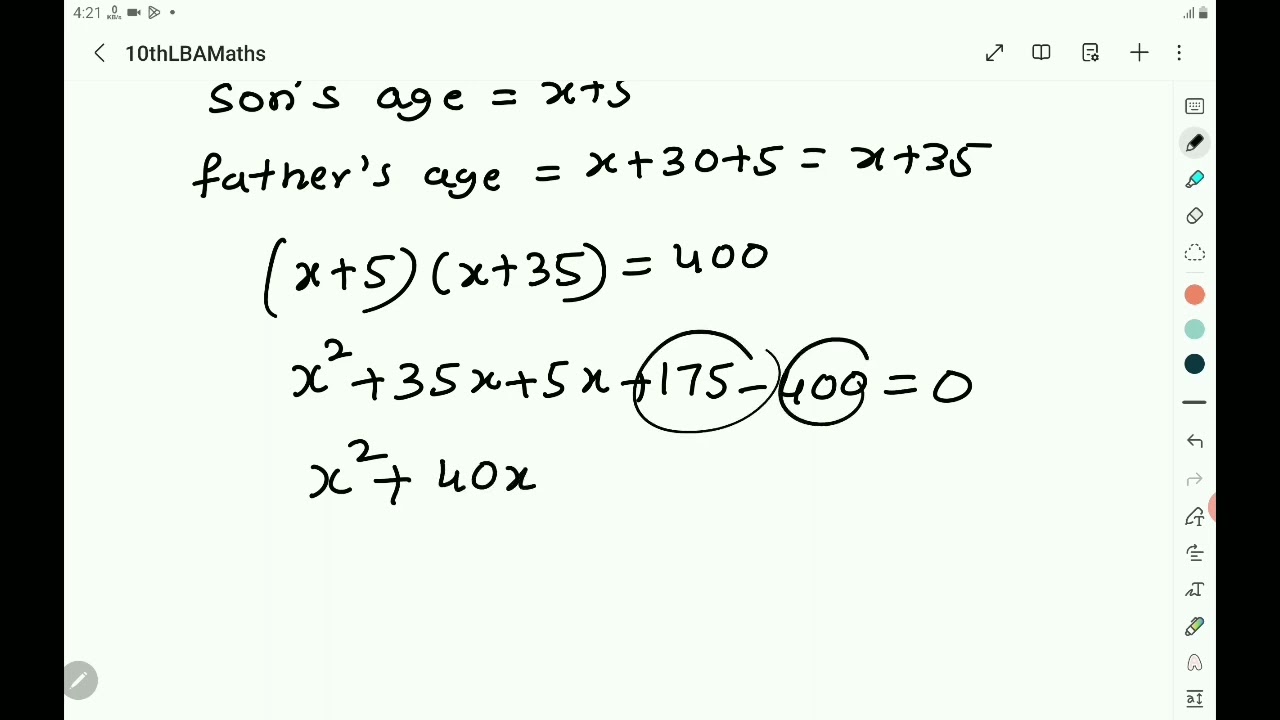 4:21 0 KB/s
10thLBAMaths
son's age = x+5
father's age = x+30+5 = x+35
(x+5)(x+35) = 400
x²+35x+5x+175-400=0
x²+40x